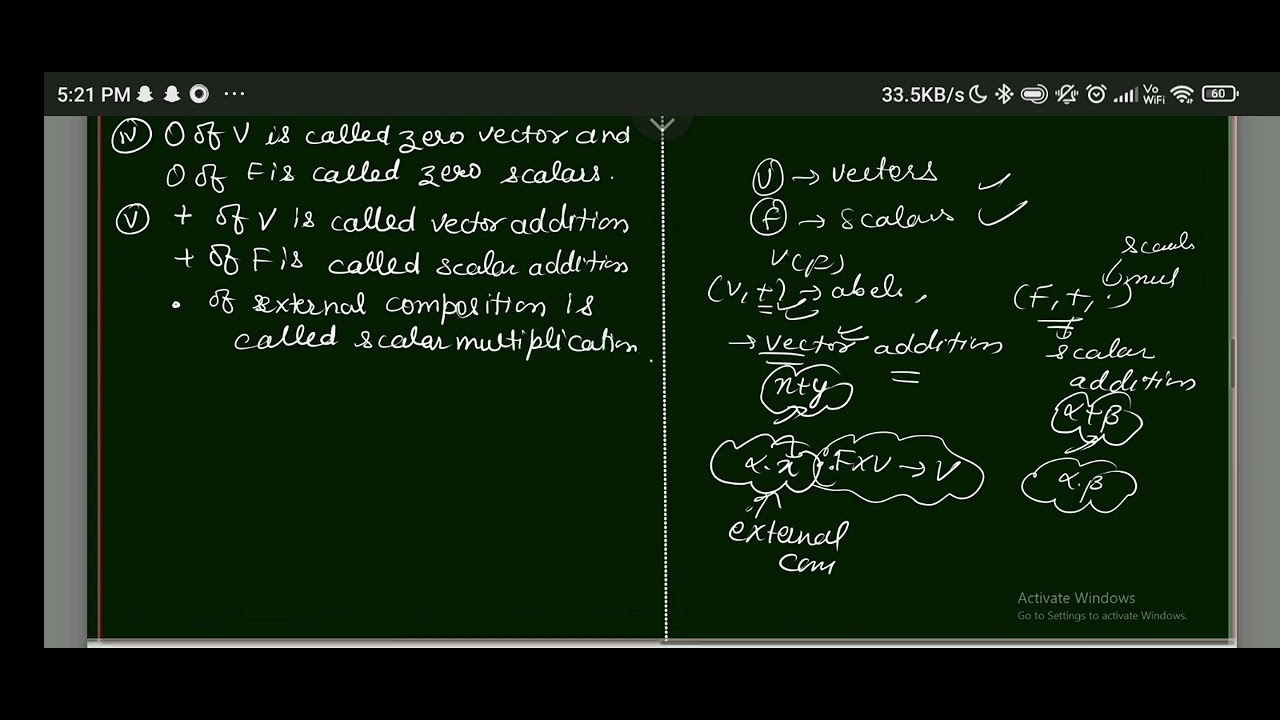 5:21 PM ... 33.5KB/s Vo WiFi 60
(iv) 0 of V is called zero vector and
0 of F is called zero scalars.
(v) + of V is called vector addition
+ of F is called scalar addition
• of external composition is
called scalar multiplication.
(V) → vectors ✓
(F) → scalars ✓
V(F)
(V, +) → abeli,
→ vector addition
x+y
α.x
•: F×V → V
external
com
mul
(F, +, ·)
scalar
addition
α+β
α.β
Activate Windows
Go to Settings to activate Windows.